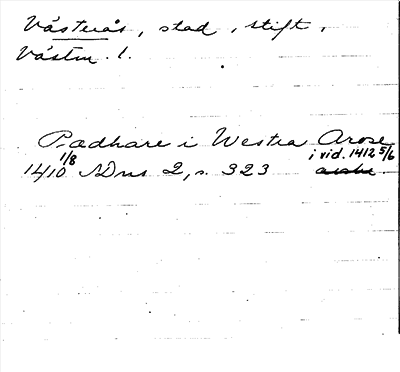 Västerås, stad, stift,
Västm. l.
Radhare i Westra Arose
1410 1/8 SDns 2, s. 323 i vid. 1412 5/6 avskr.